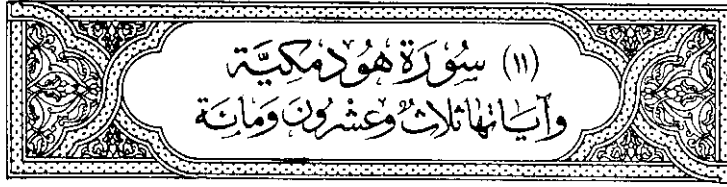 (١١) سُوْرَةُ هُوْدٍ مَكِيَّة
وَآيَانُهَا ثَلَاثٌ وَعِشْرُونَ وَمِائَة